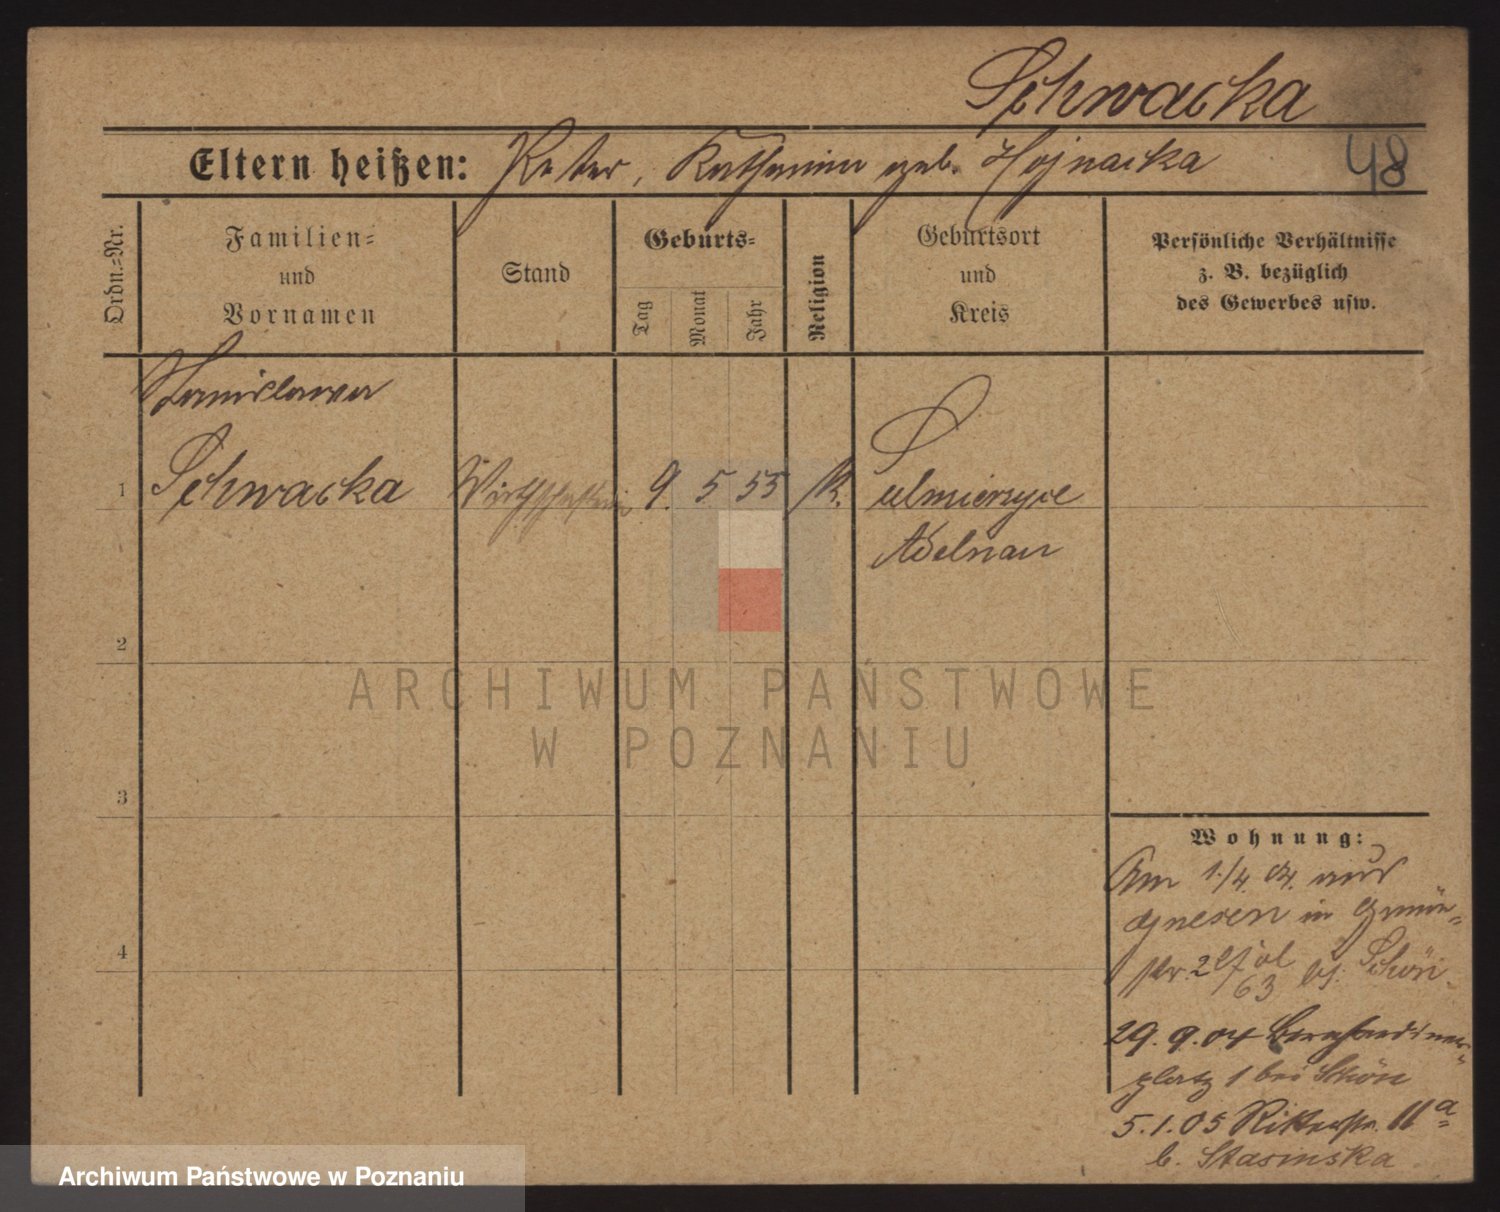 Schwacka
Eltern heißen: Peter, Katharina geb. Hojnacka
48
Ordn.=Nr.
Familien=
und
Vornamen
Stand
Geburts=
Tag
Monat
Jahr
Religion
Geburtsort
und
Kreis
Persönliche Verhältnisse
z. B. bezüglich
des Gewerbes usw.
Stanislawa
1 Schwacka Wirthschafterin 9. 5 55 k. Sulmierzyce
Adelnau
2
3
4
Wohnung:
Am 1./4. 04. aus
Gnesen in
2 63 bj. Schön
29. 9. 04 Bernhardiner=
platz 1 bei Schön
5. 1. 05 Ritterstr. 11a
b. Stasinska
ARCHIWUM PAŃSTWOWE
W POZNANIU
Archiwum Państwowe w Poznaniu